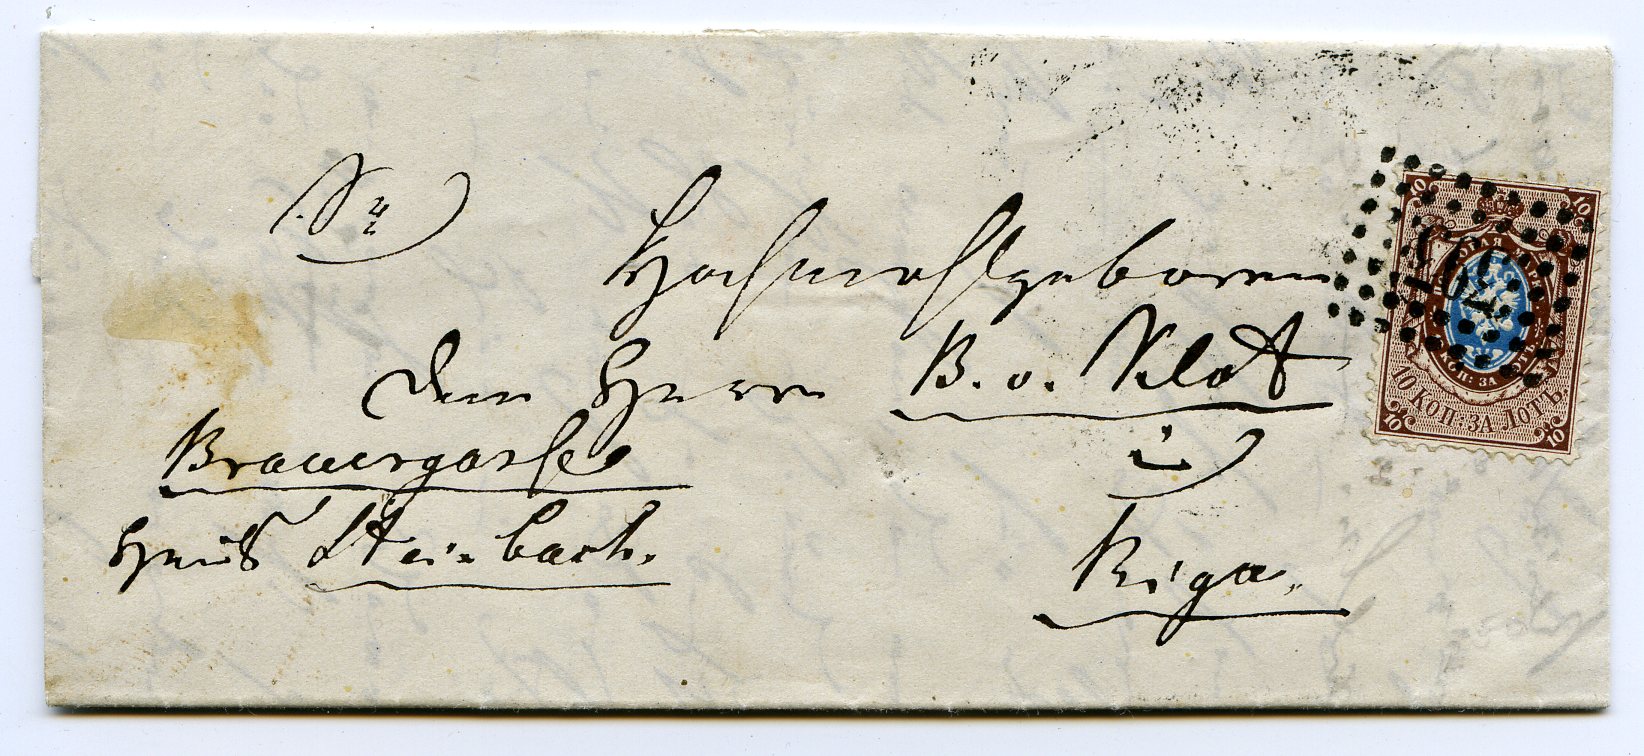 Sr
Hochwohlgeboren
dem Herrn B. v. Klot
Brauergasse
in
Haus Steinbach.
Riga.
10 10
10 КОП. ЗА ЛОТЪ.
10 10